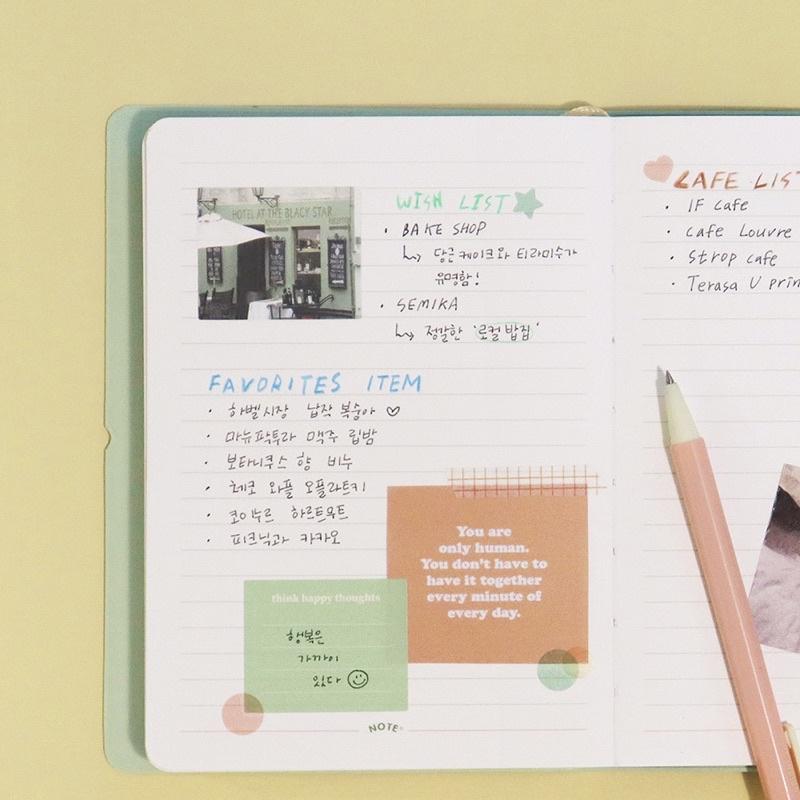 HOTEL AT THE BLACY STAR
WISH LIST
• BAKE SHOP
↳ 당근 케이크와 티라미수가
유명함!
• SEMIKA
↳ 정갈한 '로컬 밥집'
FAVORITES ITEM
• 하벨시장 납작 복숭아 ♡
• 마뉴팍투라 맥주 립밤
• 보타니쿠스 향 비누
• 체코 와플 오플라트키
• 코이누르 하르트무트
• 피크닉과 카카오
You are
only human.
You don't have to
have it together
every minute of
every day.
think happy thoughts
행복은
가까이
있다
NOTE
CAFE LIST
• IF cafe
• cafe Louvre
• Strop cafe
• Terasa U prin